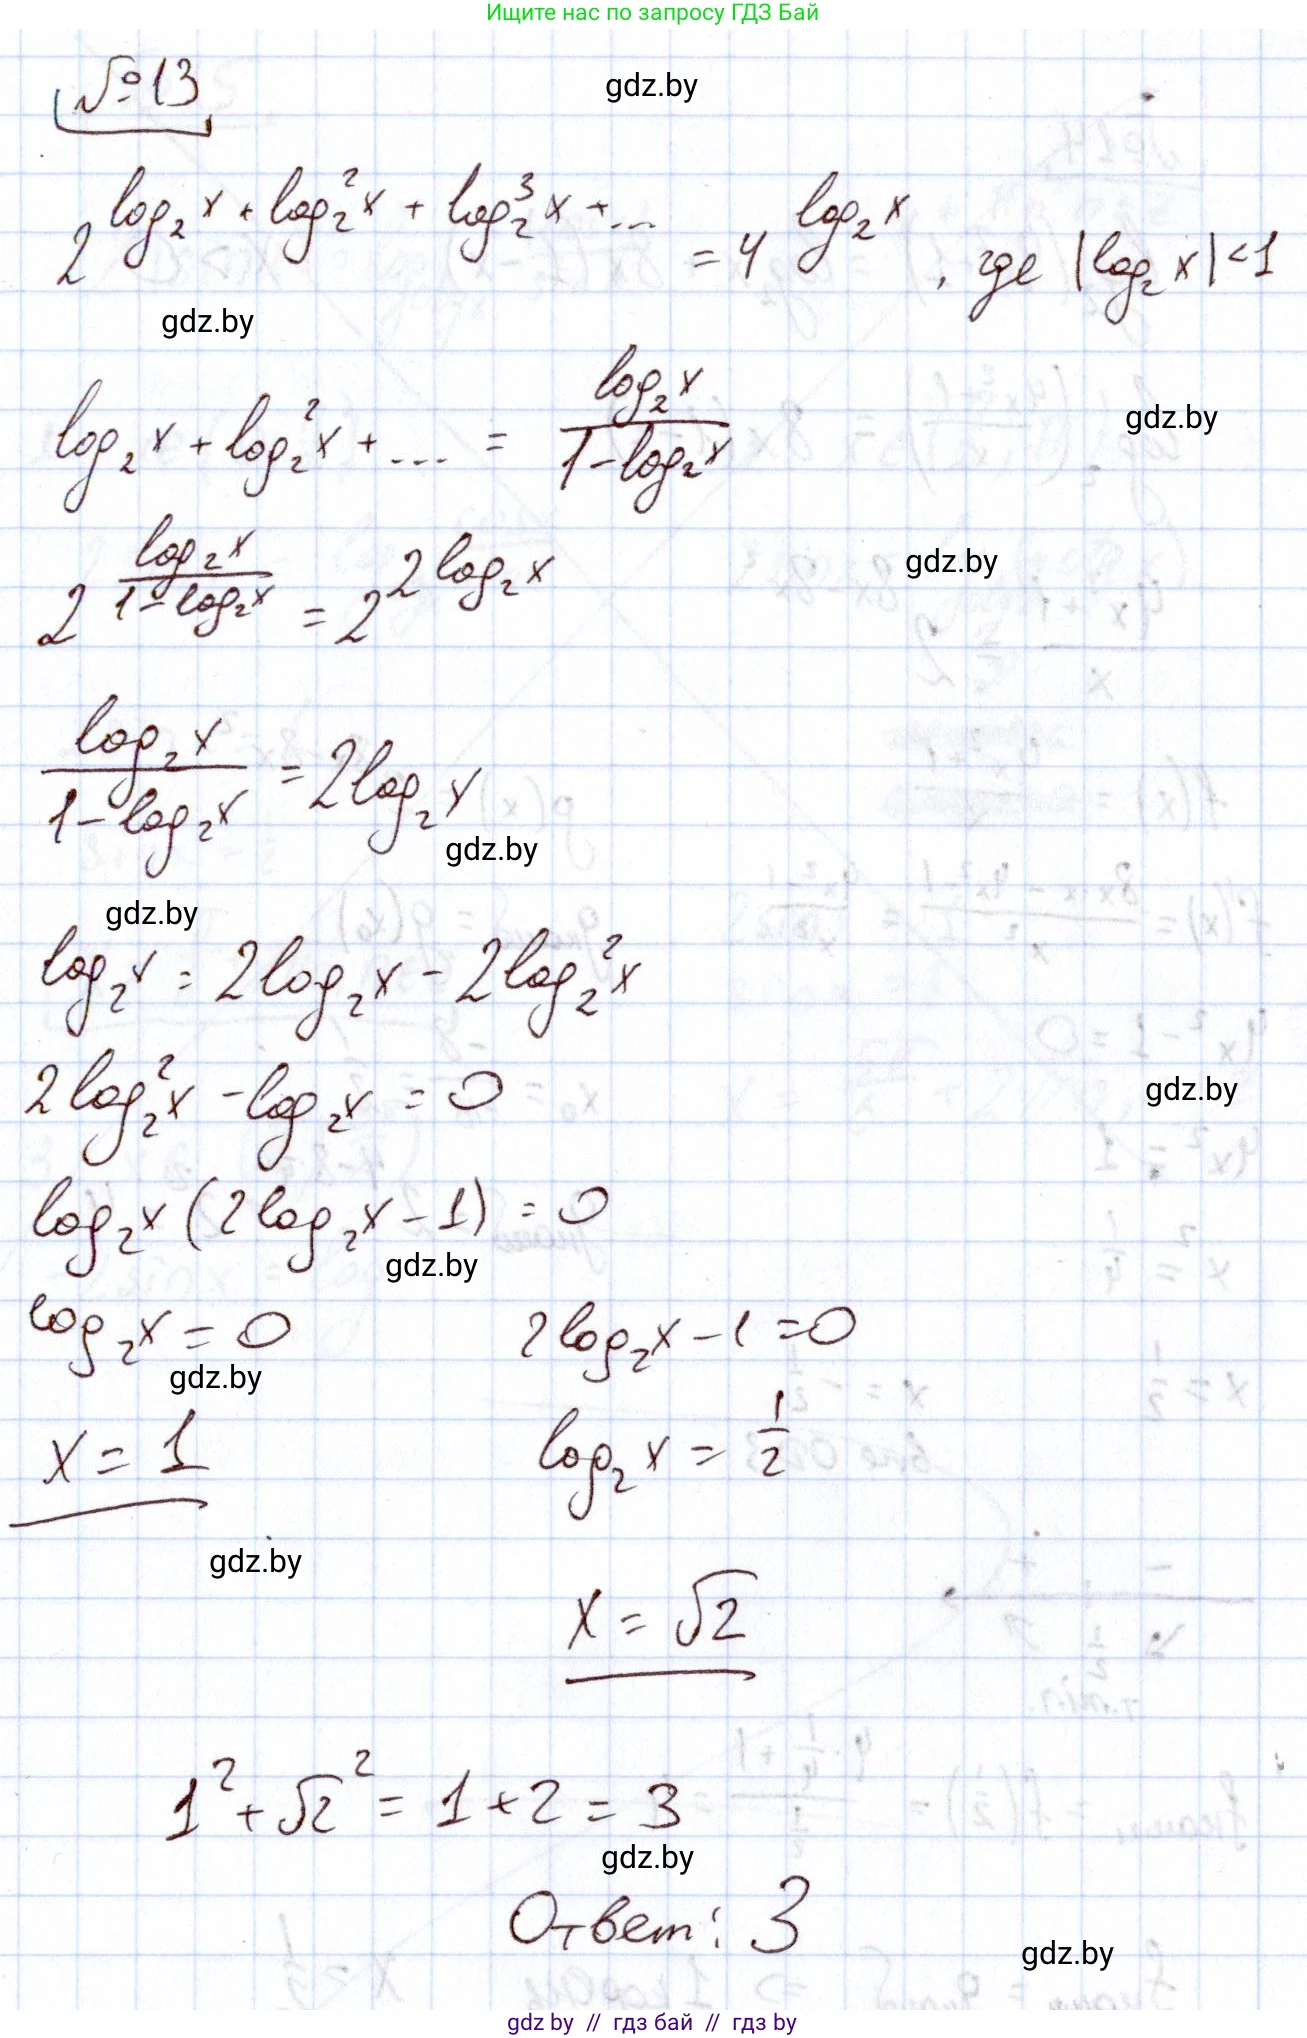 Ищите нас по запросу ГДЗ Бай
№13
gdz.by
2^(log₂x + log₂²x + log₂³x + ...) = 4^(log₂x), где |log₂x| < 1
gdz.by
log₂x + log₂²x + ... = log₂x / (1 - log₂x)
gdz.by
2^(log₂x / (1 - log₂x)) = 2^(2log₂x)
gdz.by
log₂x / (1 - log₂x) = 2log₂x
gdz.by
gdz.by
log₂x = 2log₂x - 2log₂²x
2log₂²x - log₂x = 0
gdz.by
log₂x (2log₂x - 1) = 0
gdz.by
log₂x = 0 2log₂x - 1 = 0
gdz.by
x = 1 log₂x = 1/2
gdz.by
x = √2
1² + √2² = 1 + 2 = 3
gdz.by
Ответ: 3
gdz.by
gdz by // гдз бай // гдз by